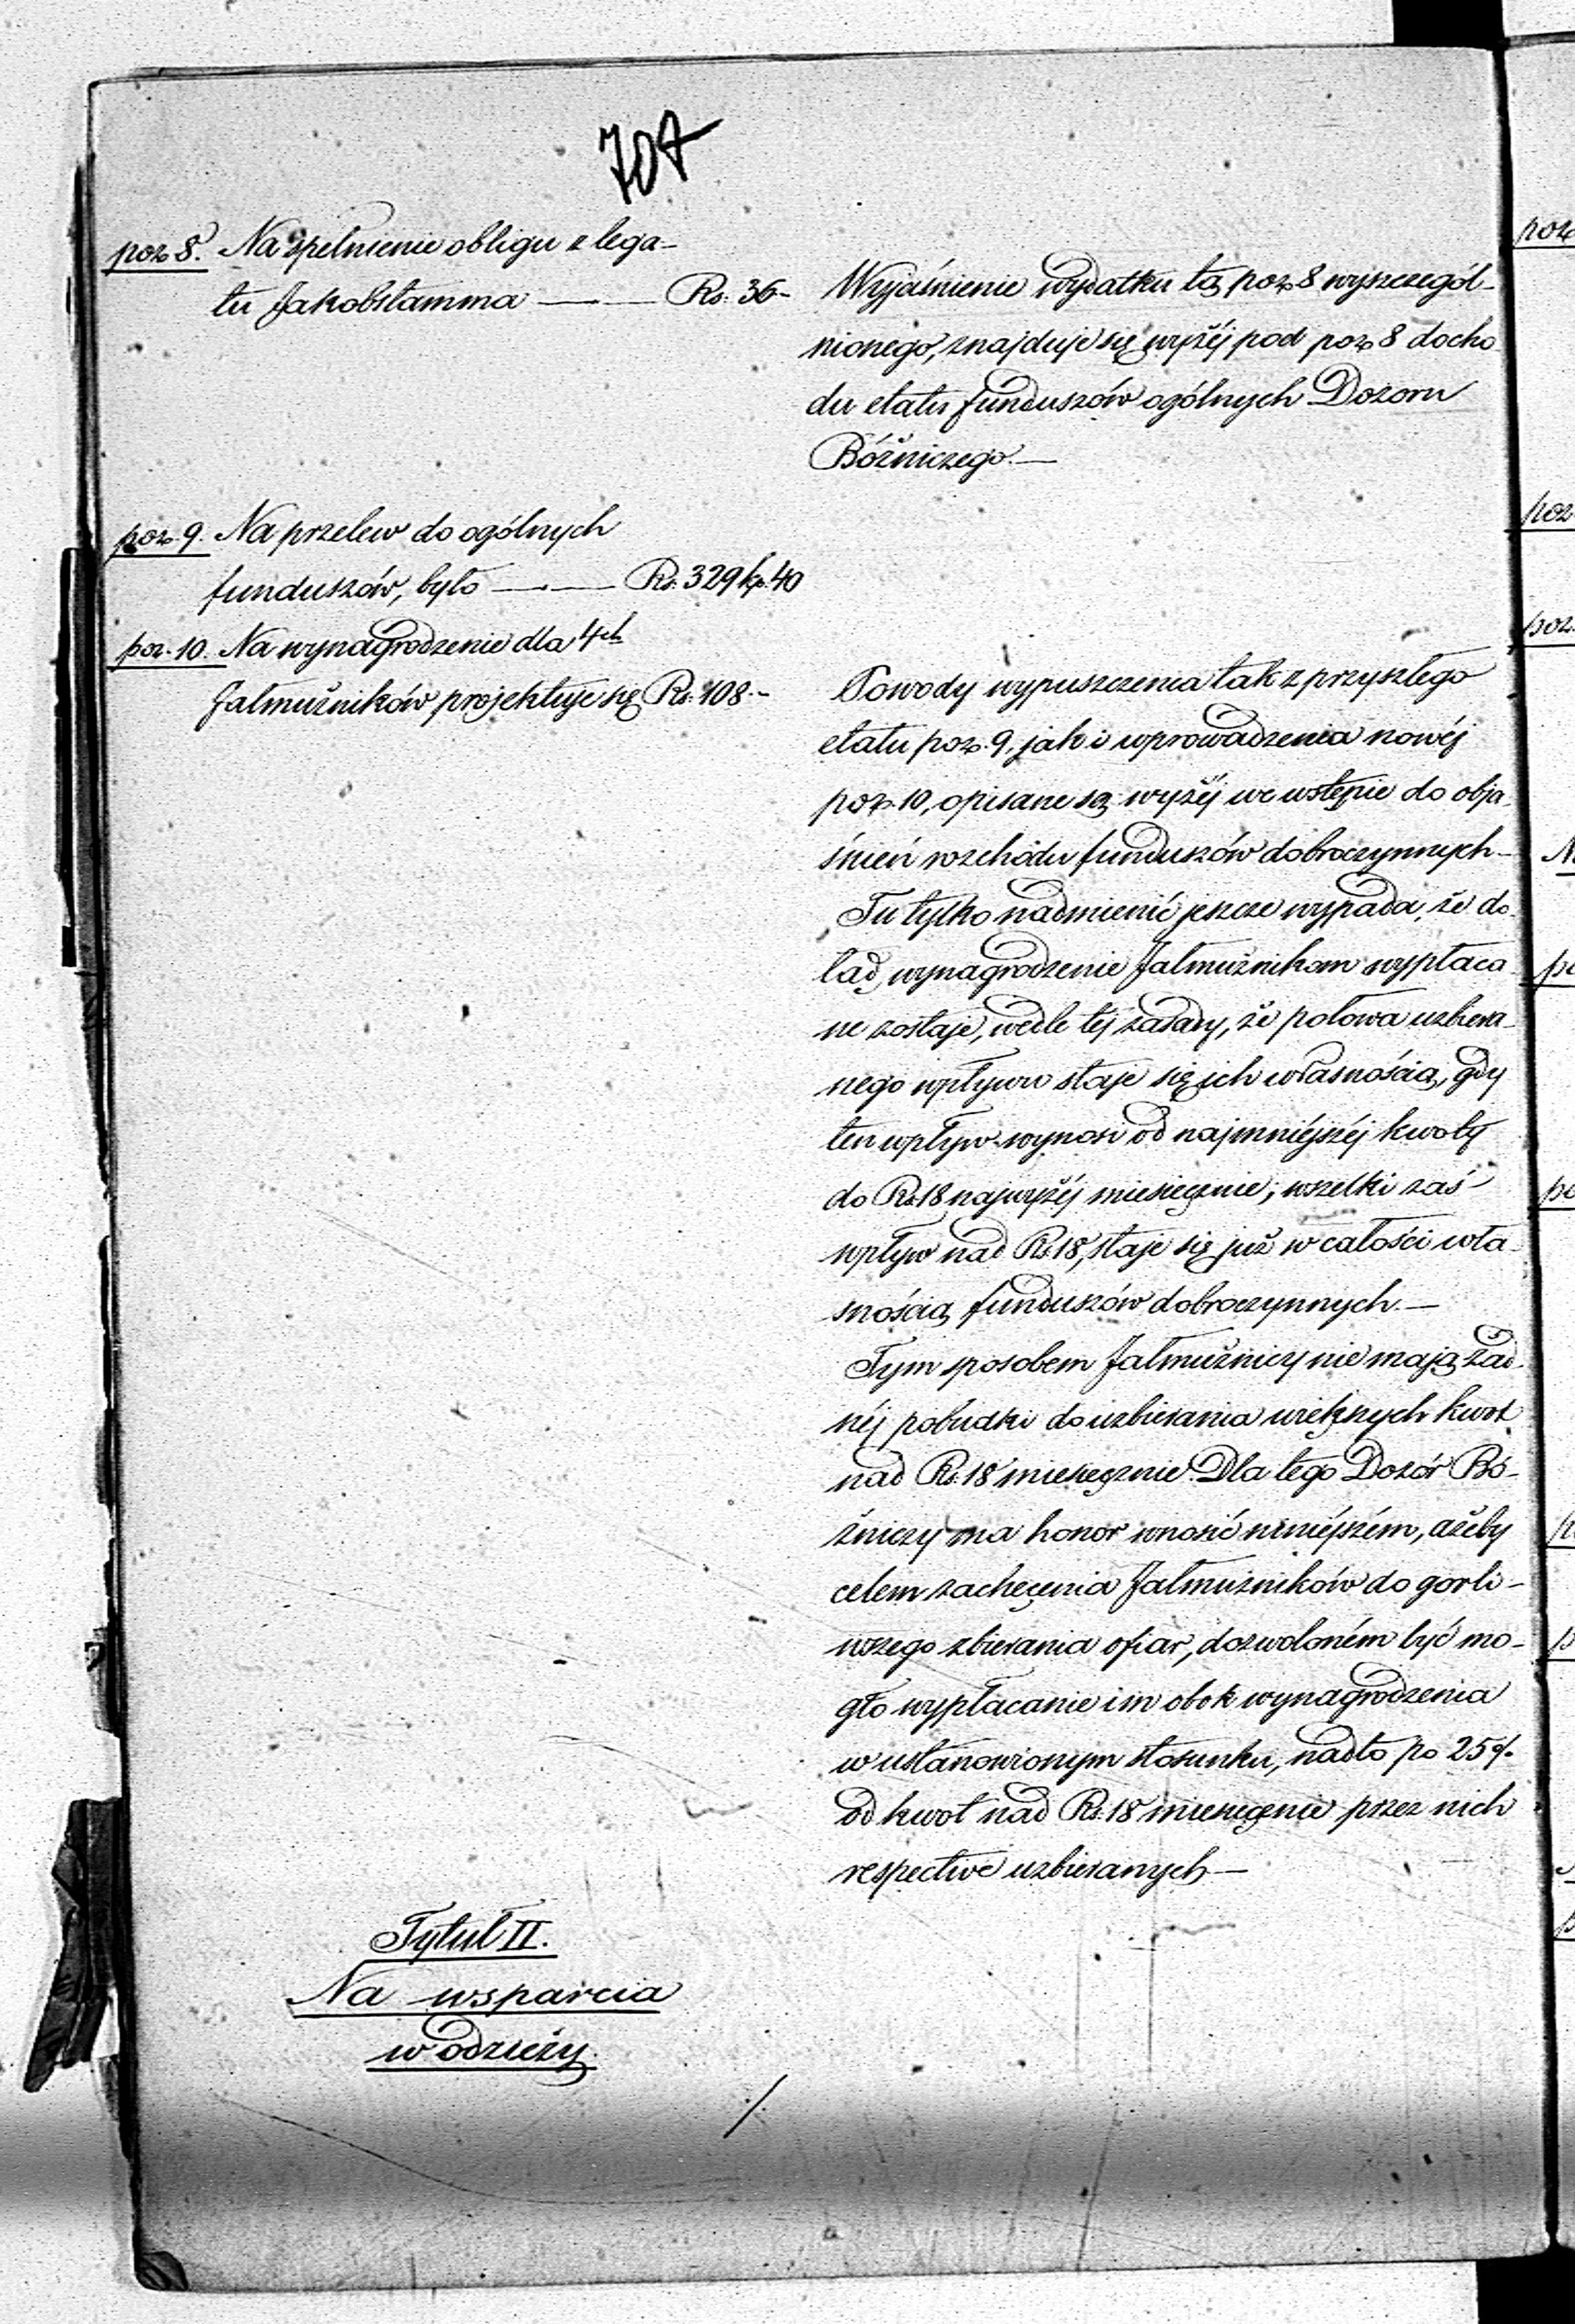 707
poz 8. Na spełnienie obligu z lega-
tu Jakobstamma — Rs: 36-
Wyjaśnienie wydatku tą poz 8 wyszczegól-
nionego, znajduje się wyżéj pod poz 8 docho
du etatu funduszów ogólnych Dozoru
Bóżniczego.—
poz. 9. Na przelew do ogólnych
funduszów, było — Rs. 329 kp. 40
poz. 10. Na wynagrodzenie dla 4ch
Jałmużników projektuje się Rs. 108.-
Powody wypuszczenia tak z przyszłego
etatu poz. 9, jak i wprowadzenia nowéj
poz. 10, opisane są wyżéj we wstępie do obja
śnień rozchodu funduszów dobroczynnych-
Tu tylko nadmienić jeszcze wypada, że do
tąd wynagrodzenie Jałmużnikom wypłaca
ne zostaje, wedle téj zasady, że połowa uzbiera-
nego wpływu staje się ich własnością, gdy
ten wpływ wynosi od najmniéjszéj kwoty
do Rs. 18 najwyżéj miesięcznie; wszelki zaś
wpływ nad Rs. 18, staje się już w całości wła-
snością funduszów dobroczynnych.—
Tym sposobem Jałmużnicy nie mają żad-
néj pobudki do uzbierania większych kwot
nad Rs. 18 miesięcznie. Dla tego Dozór Bó-
żniczy ma honor wnosić niniéjszém, ażeby
celem zachęcenia Jałmużników do gorli-
wszego zbierania ofiar, dozwoloném być mo-
gło wypłacanie im obok wynagrodzenia
w ustanowionym stosunku, nadto po 25%
od kwot nad Rs. 18 miesięcznie przez nich
respective uzbieranych—
Tytuł II.
Na wsparcia
w odzieży.